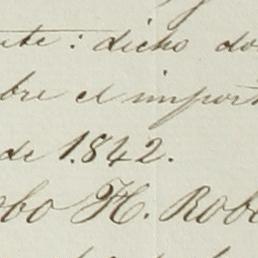 nte: dicho do
bre el import
de 1.842.
obo H. Robo